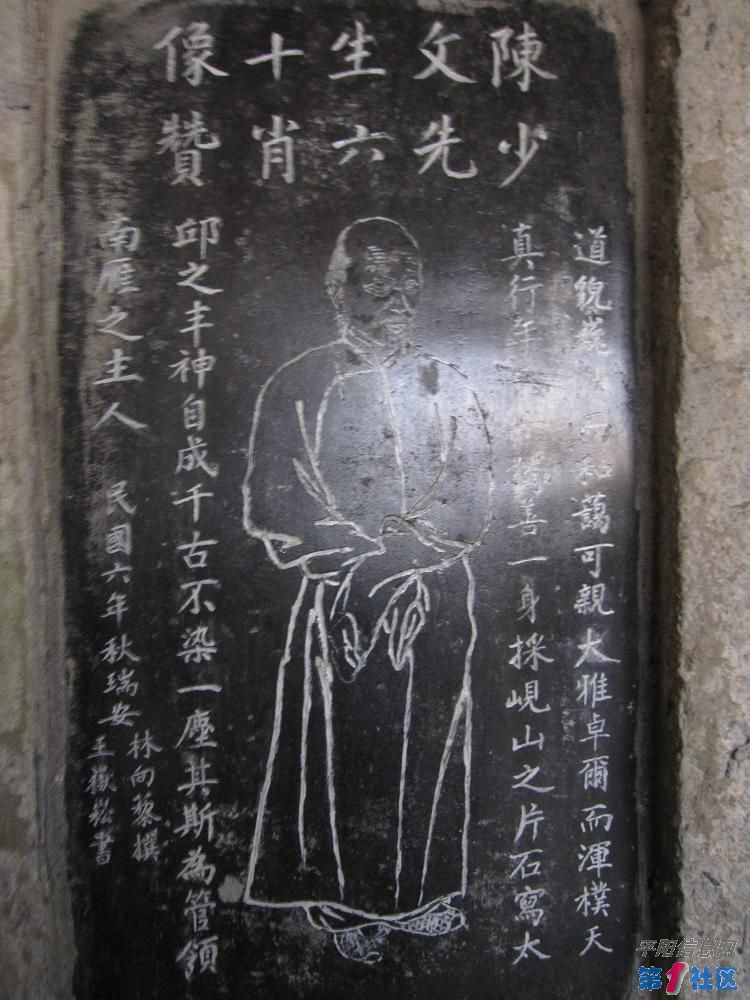 陳少
文先
生六
十肖
像贊
道貌巍而和藹可親大雅卓爾而渾樸天
真行年獨善一身採峴山之片石寫太
邱之丰神自成千古不染一塵其斯為管領
南雁之主人 民國六年秋瑞安
林向藜撰
王嶽崧書
平阳信息网
第1社区